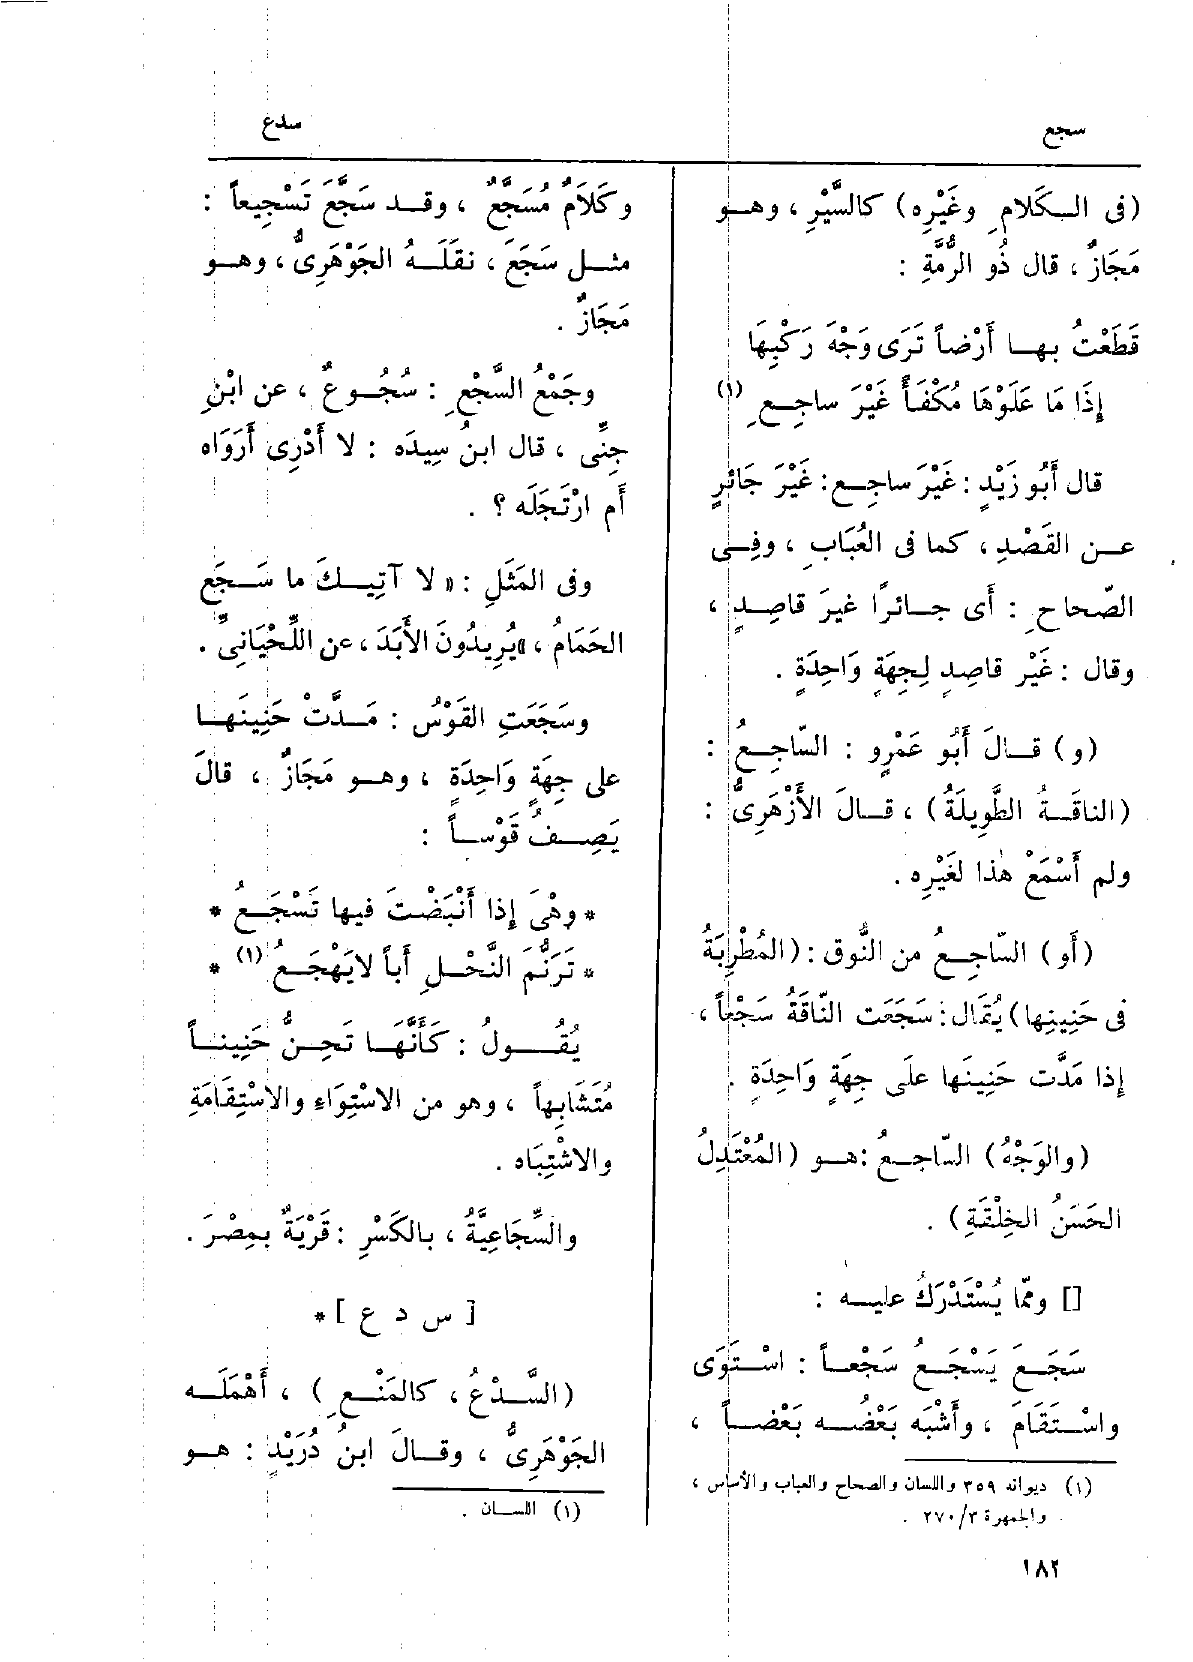 سجع
سدع
(فى الكَلامِ وغَيْرِه) كالسَّيْرِ ، وهو
مَجَازٌ ، قال ذُو الرُّمَّةِ :
قَطَعْتُ بها أَرْضاً تَرَى وَجْهَ رَكْبِهَا
إِذَا مَا عَلَوْهَا مُكْفَأً غَيْرَ ساجِعِ (١)
قال أَبُو زَيْدٍ : غَيْرَ ساجِع : غَيْرَ جَائرٍ
عن القَصْدِ ، كما فى العُبَابِ ، وفِى
الصّحاحِ : أَى جائرًا غيرَ قاصِدٍ ،
وقال : غَيْر قاصِدٍ لِجِهَةٍ وَاحِدَةٍ .
(و) قالَ أَبُو عَمْرٍو : السّاجِعُ :
(الناقَةُ الطَّوِيلَةُ) ، قالَ الأَزْهَرِىُّ :
ولم أَسْمَعْ هٰذا لغَيْرِه .
(أَو) السّاجِعُ من النُّوق : (المُطْرِبَةُ
فى حَنِينِها) يُقَال : سَجَعَت النّاقَةُ سَجْعاً ،
إِذا مَدَّت حَنِينَها علَى جِهَةٍ وَاحِدَةٍ .
(والوَجْهُ) السّاجِعُ : هو (المُعْتَدِلُ
الحَسَنُ الخِلْقَةِ) .
[] وممّا يُسْتَدْرَكُ عليه :
سَجَعَ يَسْجَعُ سَجْعاً : اسْتَوَى
واسْتَقَامَ ، وأَشْبَه بَعْضُه بَعْضاً ،
(١) ديوانه ٣٥٩ واللسان والصحاح والعباب والأساس ،
والجمهرة ٢٧٠/٣ .
وكَلَامٌ مُسَجَّعٌ ، وقد سَجَّعَ تَسْجِيعاً :
مثل سَجَعَ ، نقَلَهُ الجَوْهَرِىُّ ، وهو
مَجَازٌ .
وجَمْعُ السَّجْعِ : سُجُوعٌ ، عن ابْنِ
جِنِّى ، قال ابنُ سِيدَه : لا أَدْرِى أَرَوَاه
أَم ارْتَجَلَه ؟ .
وفى المَثَلِ : « لا آتِيكَ ما سَجَع
الحَمَامُ ، » يُرِيدُونَ الأَبَدَ ، عن اللِّحْيَانِىِّ .
وسَجَعَتِ القَوْسُ : مَدَّتْ حَنِينَها
على جِهَةٍ وَاحِدَةٍ ، وهو مَجَازٌ ، قالَ
يَصِفُ قَوْساً :
* وهْىَ إِذا أَنْبَضْتَ فيها تَسْجَعُ *
* تَرَنُّمَ النَّحْلِ أَباً لايَهْجَعُ (١) *
يُقُولُ : كَأَنَّهَا تَحِنُّ حَنِيناً
مُتَشَابِهاً ، وهو من الاسْتِوَاءِ والاسْتِقَامَةِ
والاشْتِبَاه .
والسِّجَاعِيَّةُ ، بالكَسْرِ : قَرْيَةٌ بمِصْرَ .
[ س د ع ] *
(السَّدْعُ ، كالمَنْعِ) ، أَهْمَلَه
الجَوْهَرِىُّ ، وقالَ ابنُ دُرَيْدٍ : هو
(١) اللسان .
١٨٢